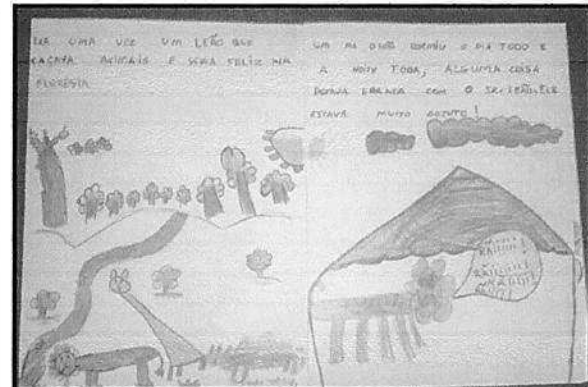 ERA UMA VEZ UM LEÃO QUE
CAÇAVA ANIMAIS E VIVIA FELIZ NA
FLORESTA
UM DIA O LEÃO DORMIU O DIA TODO E
A NOITE TODA, ALGUMA COISA
ERRADA COM O SR. LEÃO, ELE
ESTAVA MUITO !